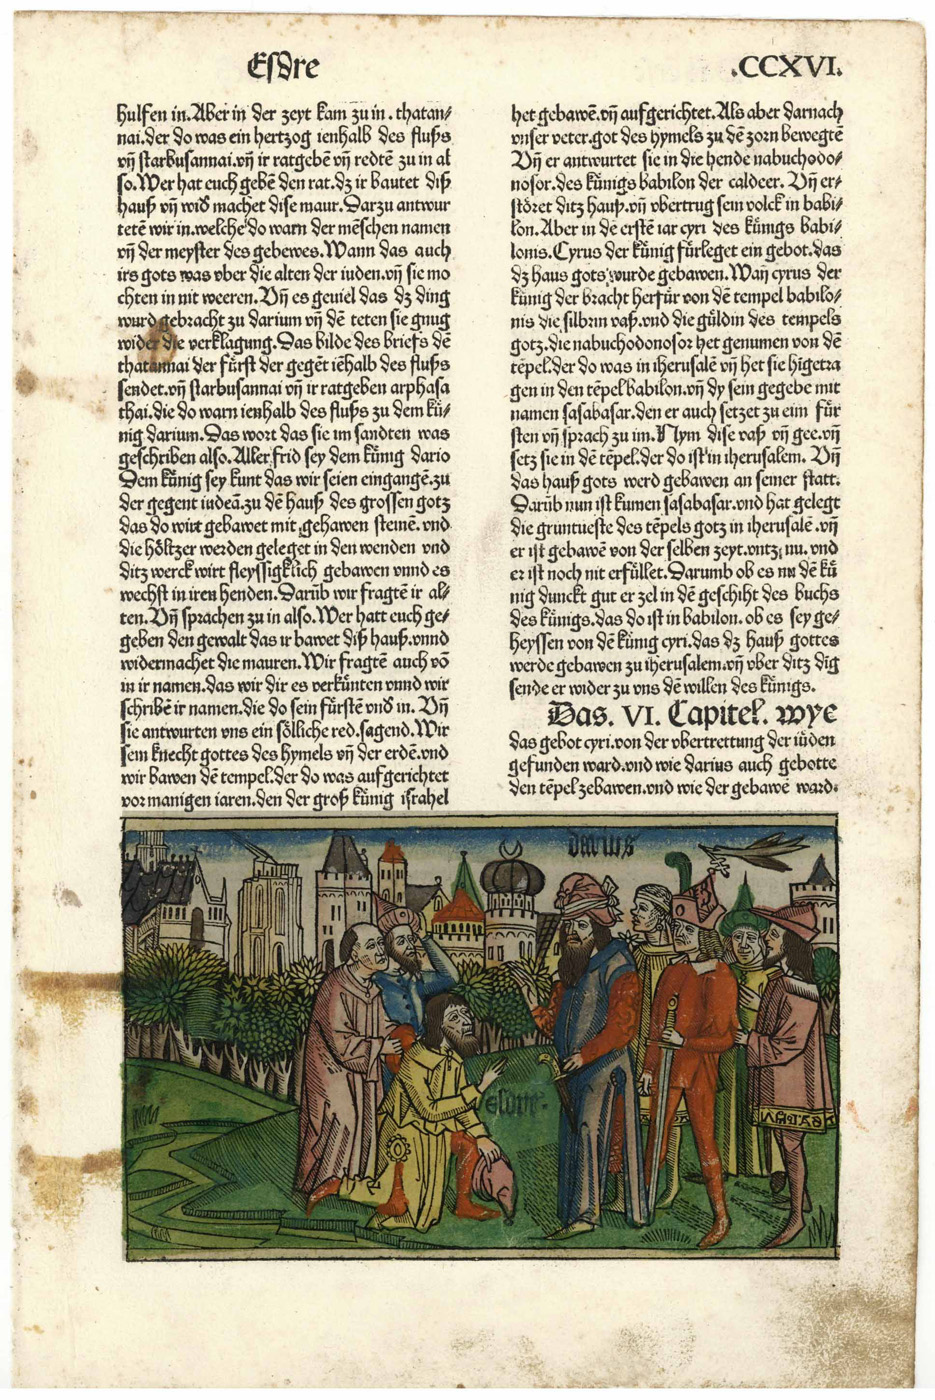 Esdre
.CCXVI.
hulfen in. Aber in der zeyt kam zu in. thatan⸗
nai. der do was ein hertzog ienhalb des fluß
vñ starbusannai. vñ ir ratgebẽ vñ redtẽ zu in al
so. Wer hat euch gebẽ den rat. dz ir bautet diß
hauß vñ wid machet dise maur. Darzu antwur
tetẽ wir in. welche do warn der mẽschen namen
vñ der meyster des gebewes. Wann das auch
irs gots was vber die alten der iuden. vñ sie mo
chten in nit weeren. Vñ es geuiel das dz ding
wurd gebracht zu darium vñ dẽ teten sie gnug
wider die verklagung. Das bilde des briefs dẽ
thatannai der fürst der gegẽt iẽhalb des fluß
sendet. vñ starbusannai vñ ir ratgeben arphasa
thai. die do warn ienhalb des fluß zu dem kü⸗
nig darium. Das wort das sie im sandten was
geschriben also. Aller frid sey dem künig dario
Dem künig sey kunt das wir seien eingangẽ. zu
der gegent iudeã. zu dẽ hauß des grossen gotz
das do wirt gebawet mit gehawen steinẽ. vnd
die höltzer werden geleget in den wenden vnd
ditz werck wirt fleyssigklich gebawen vnnd es
wechst in iren henden. Darũb wir fragtẽ ir al⸗
ten. Vñ sprachen zu in also. Wer hatt euch ge⸗
geben den gewalt das ir bawet diß hauß. vnnd
widermachet die mauren. Wir fragtẽ auch võ
in ir namen. das wir dir es verkünten vnnd wir
schribẽ ir namen. die do sein fürstẽ vnd in. Vñ
sie antwurten vns ein sölliche red. sagend. Wir
sein knecht gottes des hymels vñ der erdẽ. vnd
wir bawen dẽ tempel. der do was aufgerichtet
vor manigen iaren. den der groß künig israhel
het gebawẽ. vñ aufgerichtet. Als aber darnach
vnser veter. got des hymels zu dẽ zorn bewegtẽ
Vñ er antwurtet sie in die hende nabuchodo⸗
nosor. des künigs babilon der caldeer. Vñ er⸗
störet ditz hauß. vñ vbertrug sein volck in babi⸗
lon. Aber in dẽ erstẽ iar cyri des künigs babi⸗
lonis. Cyrus der künig fürleget ein gebot. das
dz haus gots wurde gebawen. Wañ cyrus der
künig der bracht herfür von dẽ tempel babilo⸗
nis die silbrin vaß. vnd die güldin des tempels
gotz. die nabuchodonosor het genumen von dẽ
tẽpel. der do was in iherusalẽ vñ het sie hĩgetra
gen in den tẽpel babilon. vñ dy sein gegebẽ mit
namen sasabasar. den er auch setzet zu eim für
sten vñ sprach zu im. Nym dise vaß vñ gee. vñ
setz sie in dẽ tẽpel. der do ist in iherusalem. Vñ
das hauß gots werd gebawen an seiner statt.
Darũb nun ist kumen sasabasar. vnd hat gelegt
die gruntueste des tẽpels gotz in iherusalẽ. vñ
er ist gebawẽ von der selben zeyt. vntz nu. vnd
er ist noch nit erfüllet. Darumb ob es nu dẽ kü
nig dunckt gut er zel in dẽ geschiht des buchs
des künigs. das do ist in babilon. ob es sey ge⸗
heyssen von dẽ künig cyri. das dz hauß gottes
werde gebawen zu iherusalem. vñ vber ditz dĩg
sende er wider zu vns dẽ willen des künigs.
Das. VI. Capitel. wye
das gebot cyri. von der vbertrettung der iüden
gefunden ward. vnd wie darius auch gebotte
den tẽpel zebawen. vnd wie der gebawẽ ward.
darius
esdre.